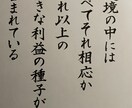 境の中には
べてそれ相応か
れ以上の
きな利益の種子が
まれている